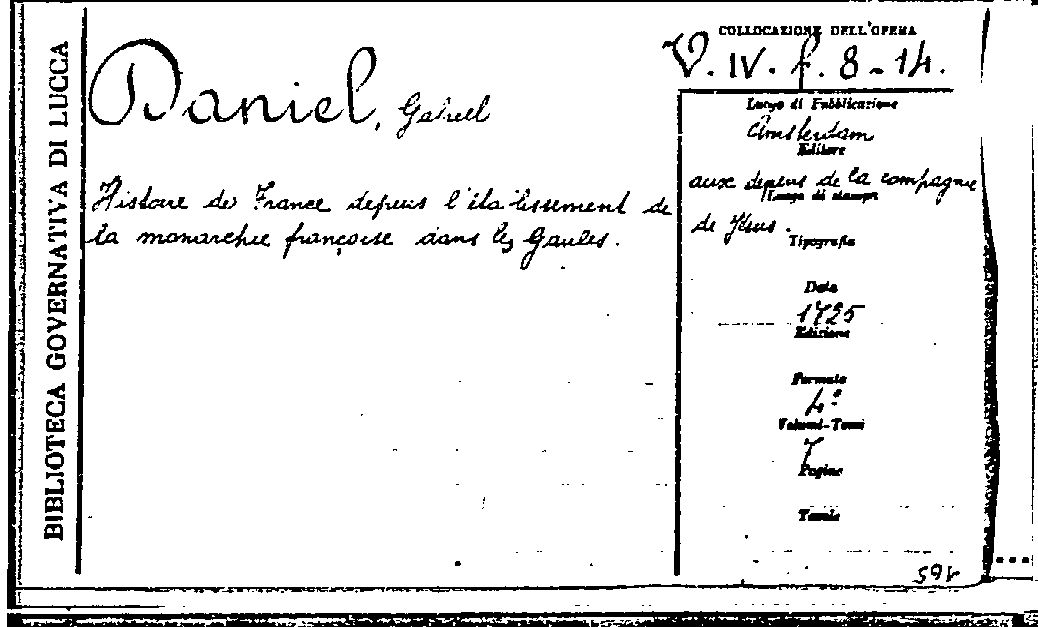 BIBLIOTECA GOVERNATIVA DI LUCCA
Daniel, Gabriel
Histoire de France depuis l'établissement de
la monarchie françoise dans les Gaules.
COLLOCAZIONE DELL'OPERA
V. IV. f. 8-14.
Luogo di Pubblicazione
Amsterdam
Editore
aux depens de la compagnie
Luogo di stampa
de Jésus.
Tipografia
Data
1725
Edizione
Formato
4º
Volumi-Tomi
7
Pagine
Tavole